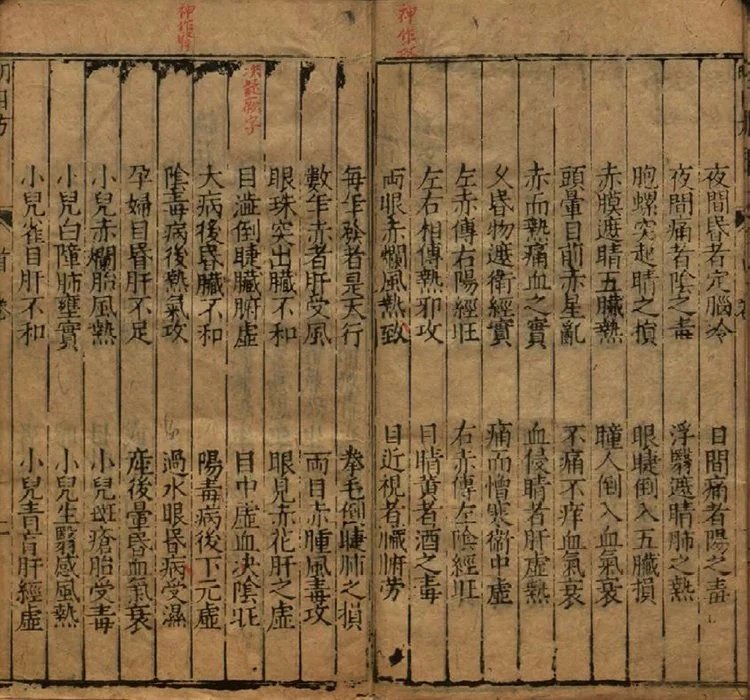 夜間昏者定腦冷 日間痛者陽之毒
夜間痛者陰之毒 浮翳遮睛肺之熱
胞螺突起睛之損 眼睫倒入五臟損
赤膜遮睛五臟熱 瞳人倒入血氣衰
頭暈目前赤星亂 不痛不痒血氣衰
赤而熱痛血之實 血侵睛者肝虛熱
乆昏物遮衛經實 痛而憎寒衛中虛
左赤傳右陽經旺 右赤傳左陰經旺
左右相傳熱邪攻 目睛黃者酒之毒
両眼赤爛風熱致 目近視者臟腑勞
每年發者是天行 拳毛倒睫肺之損
數年赤者肝受風 両目赤腫風毒攻
眼珠突出臟不和 眼見赤花肝之虛
决疑厥字
目澁倒睫臟腑虛 目中虛血决陰旺
大病後昏臟不和 陽毒病後下元虛
陰毒病後熱氣攻 過水眼昏病受濕
孕婦目昏肝不足 産後暈昏血氣衰
小兒赤爛胎風熱 小兒斑瘡胎受毒
小兒白障肺壅實 小兒生翳感風熱
小兒雀目肝不和 小兒青盲肝經虛
首卷